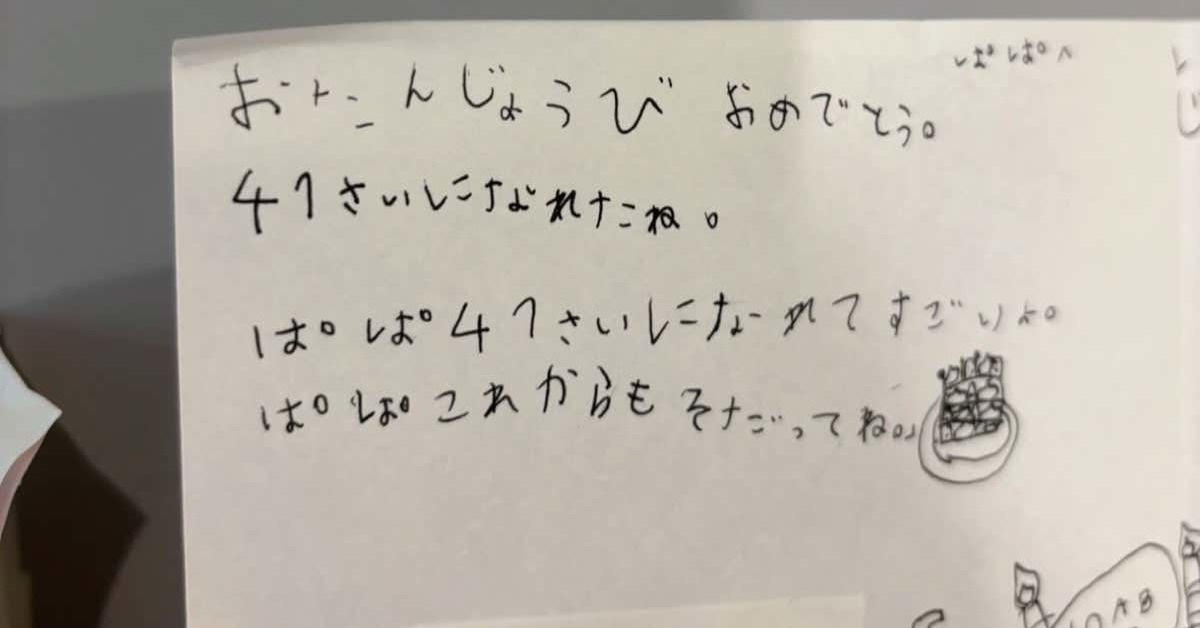 ぱぱへ
おたんじょうび おめでとう。
41さいになれたね。
ぱぱ41さいになれてすごいよ。
ぱぱこれからもそだってね。